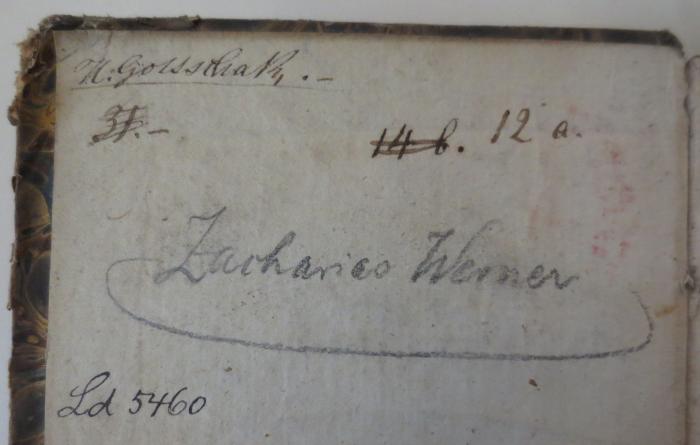 H. Gottschalk, . –
14 b. 12 a.
Zacharias Werner
Ld 5460